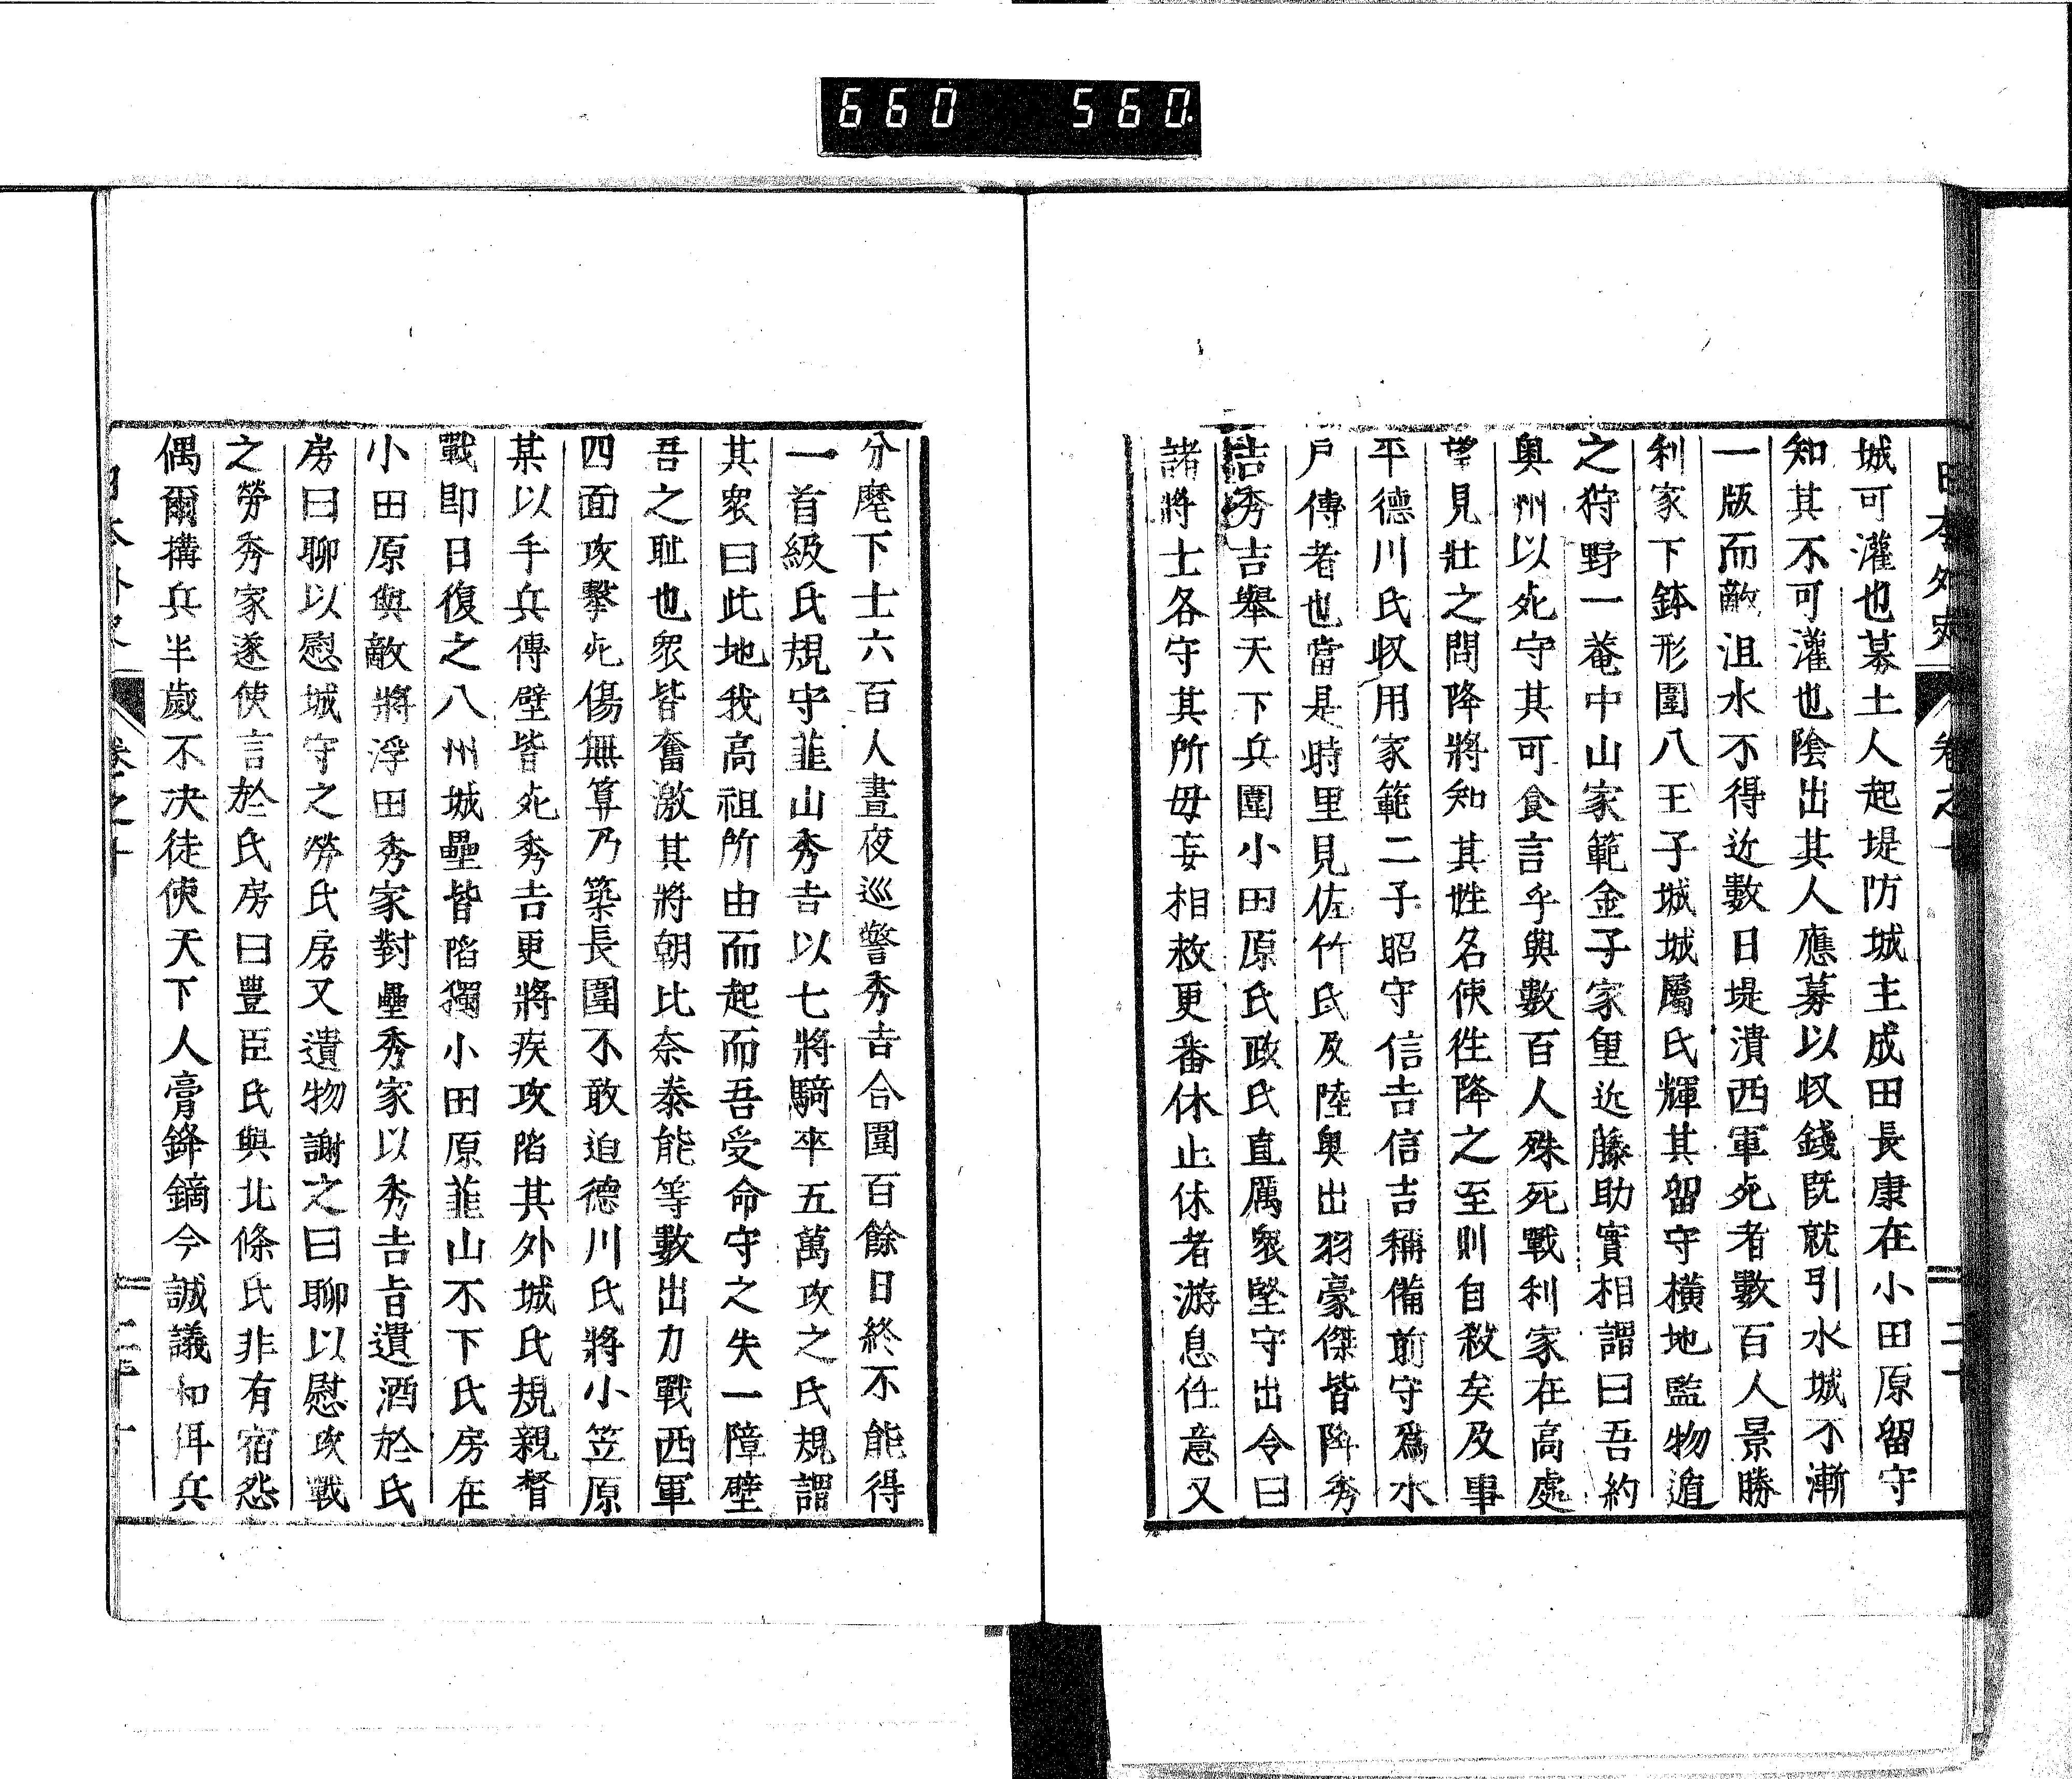 660 560.
日本外史 卷之十 二十
城可灌也募土人起堤防城主成田長康在小田原留守
知其不可灌也陰出其人應募以収錢既就引水城不漸
一版而敵沮水不得近數日堤潰西軍死者數百人景勝
利家下鉢形圍八王子城城屬氏輝其留守橫地監物遁
之狩野一菴中山家範金子家重近藤助實相謂曰吾約
奥州以死守其可食言乎與數百人殊死戰利家在高處
望見壯之問降將知其姓名使徃降之至則自殺矣及事
平德川氏収用家範二子昭守信吉信吉稱備前守爲水
戶傳者也當是時里見佐竹氏及陸奥出羽豪傑皆降秀
吉秀吉舉天下兵圍小田原氏政氏直厲衆堅守出令曰
諸將士各守其所毋妄相救更番休止休者游息任意又
分麾下士六百人晝夜巡警秀吉合圍百餘日終不能得
一首級氏規守韮山秀吉以七將騎卒五萬攻之氏規謂
其衆曰此地我高祖所由而起而吾受命守之失一障壁
吾之耻也衆皆奮激其將朝比奈泰能等數出力戰西軍
四面攻擊死傷無算乃築長圍不敢迫德川氏將小笠原
某以手兵傳壁皆死秀吉更將疾攻陷其外城氏規親督
戰即日復之八州城壘皆陷獨小田原韮山不下氏房在
小田原與敵將浮田秀家對壘秀家以秀吉旨遺酒於氏
房曰聊以慰城守之勞氏房又遺物謝之曰聊以慰攻戰
之勞秀家遂使言於氏房曰豐臣氏與北條氏非有宿怨
偶爾構兵半歲不决徒使天下人膏鋒鏑今誠議和弭兵
日本外史 卷之十